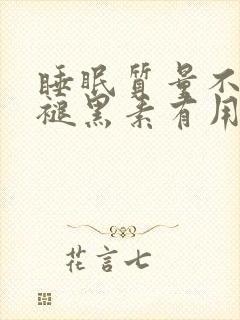 睡眠质量不
褪黑素有用
花言七